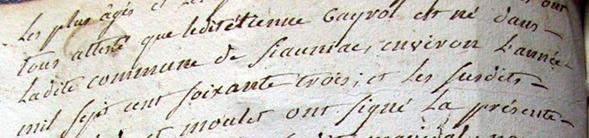 les plus âgés et
tous attesté que ledit étienne Gayrol est né dans
ladite commune de Siauniac, environ l'année
mil sept cent soixante trois; et les susdits
et moulet ont signé la présente